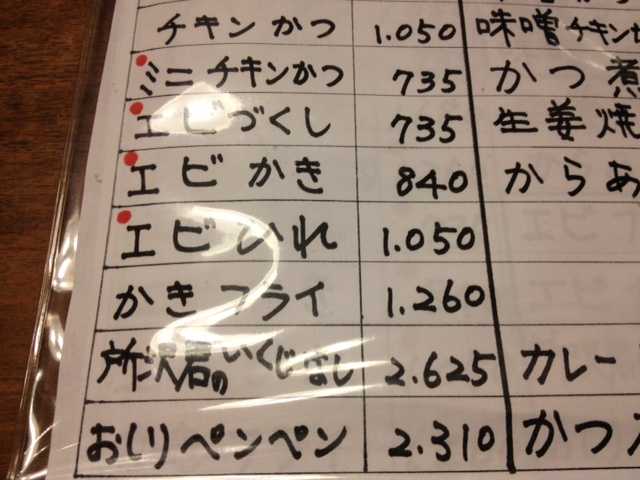 チキンかつ 1.050 味噌チキン
ミニチキンかつ 735 かつ煮
エビづくし 735 生姜焼
エビかき 840 からあ
エビひれ 1.050
かきフライ 1.260
所沢君のいくじなし 2.625 カレー
おしりペンペン 2.310 かつ